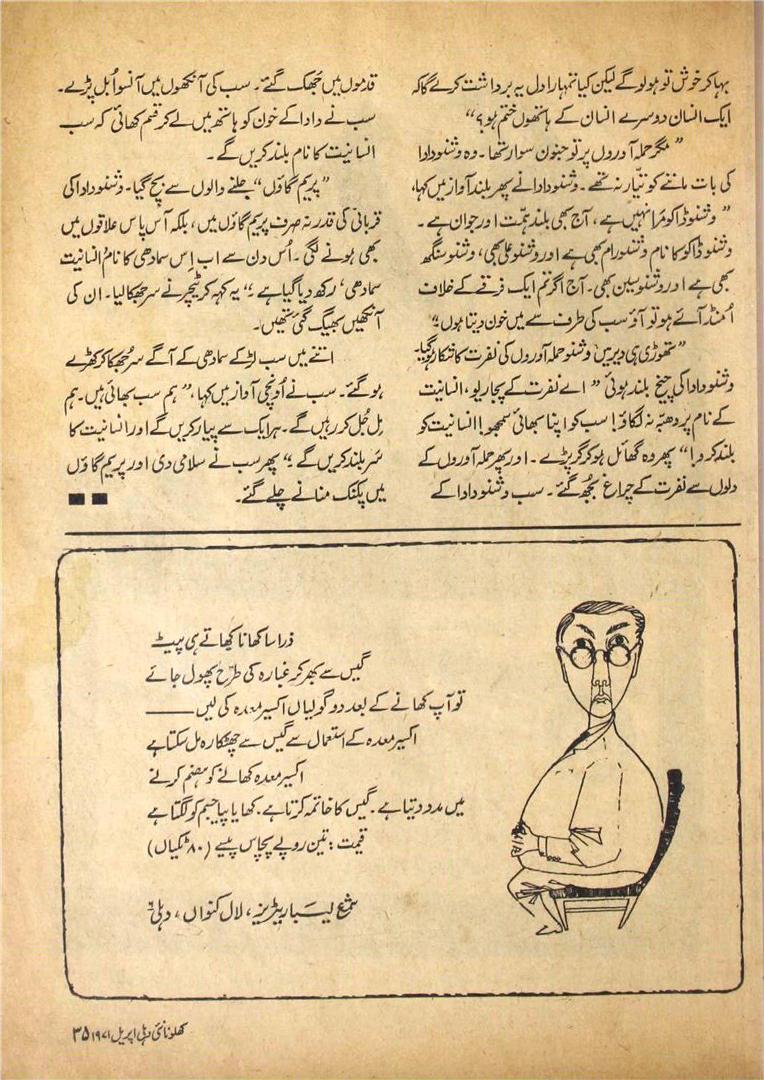 بہا کر خوش تو ہو لو گے لیکن کیا تمہارا دل یہ برداشت کرے گا کہ
ایک انسان دوسرے انسان کے ہاتھوں ختم ہو؟“
”مگر حملہ آوروں پر تو جنون سوار تھا۔ وہ وشنو دادا
کی بات ماننے کو تیّار نہ تھے۔ وشنو دادا نے پھر بلند آواز میں کہا،
”وشنو ڈاکو مَرا نہیں ہے، آج بھی بلند ہمّت اور جوان ہے۔
وشنو ڈاکو کا نام وشنو رام بھی ہے اور وشنو علی بھی، وشنو سنگھ
بھی ہے اور وشنو بین بھی۔ آج اگر تم ایک فرقے کے خلاف
اُمنڈ آئے ہو تو آؤ سب کی طرف سے میں خون دیتا ہوں۔“
”تھوڑی ہی دیر میں وشنو حملہ آوروں کی نفرت کا شکار ہو گیا۔
وشنو دادا کی چیخ بلند ہوئی ”اے نفرت کے پجاریو، انسانیت
کے نام پر دھبّہ نہ لگاؤ! سب کو اپنا بھائی سمجھو! انسانیت کو
بلند کرو!“ پھر وہ گھائل ہو کر گر پڑے۔ اور پھر حملہ آوروں کے
دلوں سے نفرت کے چراغ بُجھ گئے۔ سب وشنو دادا کے
قدموں میں جُھک گئے۔ سب کی آنکھوں میں آنسو اُبل پڑے۔
سب نے دادا کے خون کو ہاتھ میں لے کر قسم کھائی کہ سب
انسانیت کا نام بلند کریں گے۔
”پریم گاؤں“ جلنے والوں سے بچ گیا۔ وشنو دادا کی
قربانی کی قدر نہ صرف پریم گاؤں میں، بلکہ آس پاس علاقوں میں
بھی ہونے لگی۔ اُس دن سے اب اِس سمادھی کا نام ’انسانیت
سمادھی‘ رکھ دیا گیا ہے۔“ یہ کہہ کر ٹیچر نے سر جھکا لیا۔ ان کی
آنکھیں بھیگ گئی تھیں۔
اتنے میں سب لڑکے سمادھی کے آگے سر جُھکا کر کھڑے
ہو گئے۔ سب نے اُونچی آواز میں کہا، ”ہم سب بھائی ہیں۔ ہم
مِل جُل کر رہیں گے۔ ہر ایک سے پیار کریں گے اور انسانیت کا
سَر بلند کریں گے۔“ پھر سب نے سلامی دی اور پریم گاؤں
میں پکنک منانے چلے گئے۔
ذرا سا کھانا کھاتے ہی پیٹ
گیس سے بھر کر غبارہ کی طرح پھول جائے
تو آپ کھانے کے بعد دو گولیاں اکسیر معدہ کی لیں ——
اکسیر معدہ کے استعمال سے گیس سے چھٹکارہ مل سکتا ہے
اکسیر معدہ کھانے کو ہضم کرنے
میں مدد دیتا ہے۔ گیس کا خاتمہ کرتا ہے۔ کھایا پیا جسم کو لگتا ہے
قیمت: تین روپے پچاس پیسے (۸۰ ٹکیاں)
شمع لیبارٹریز، لال کنواں، دہلی ۶
کھلونا نئی دہلی اپریل ۱۹۷۱ ۳۵